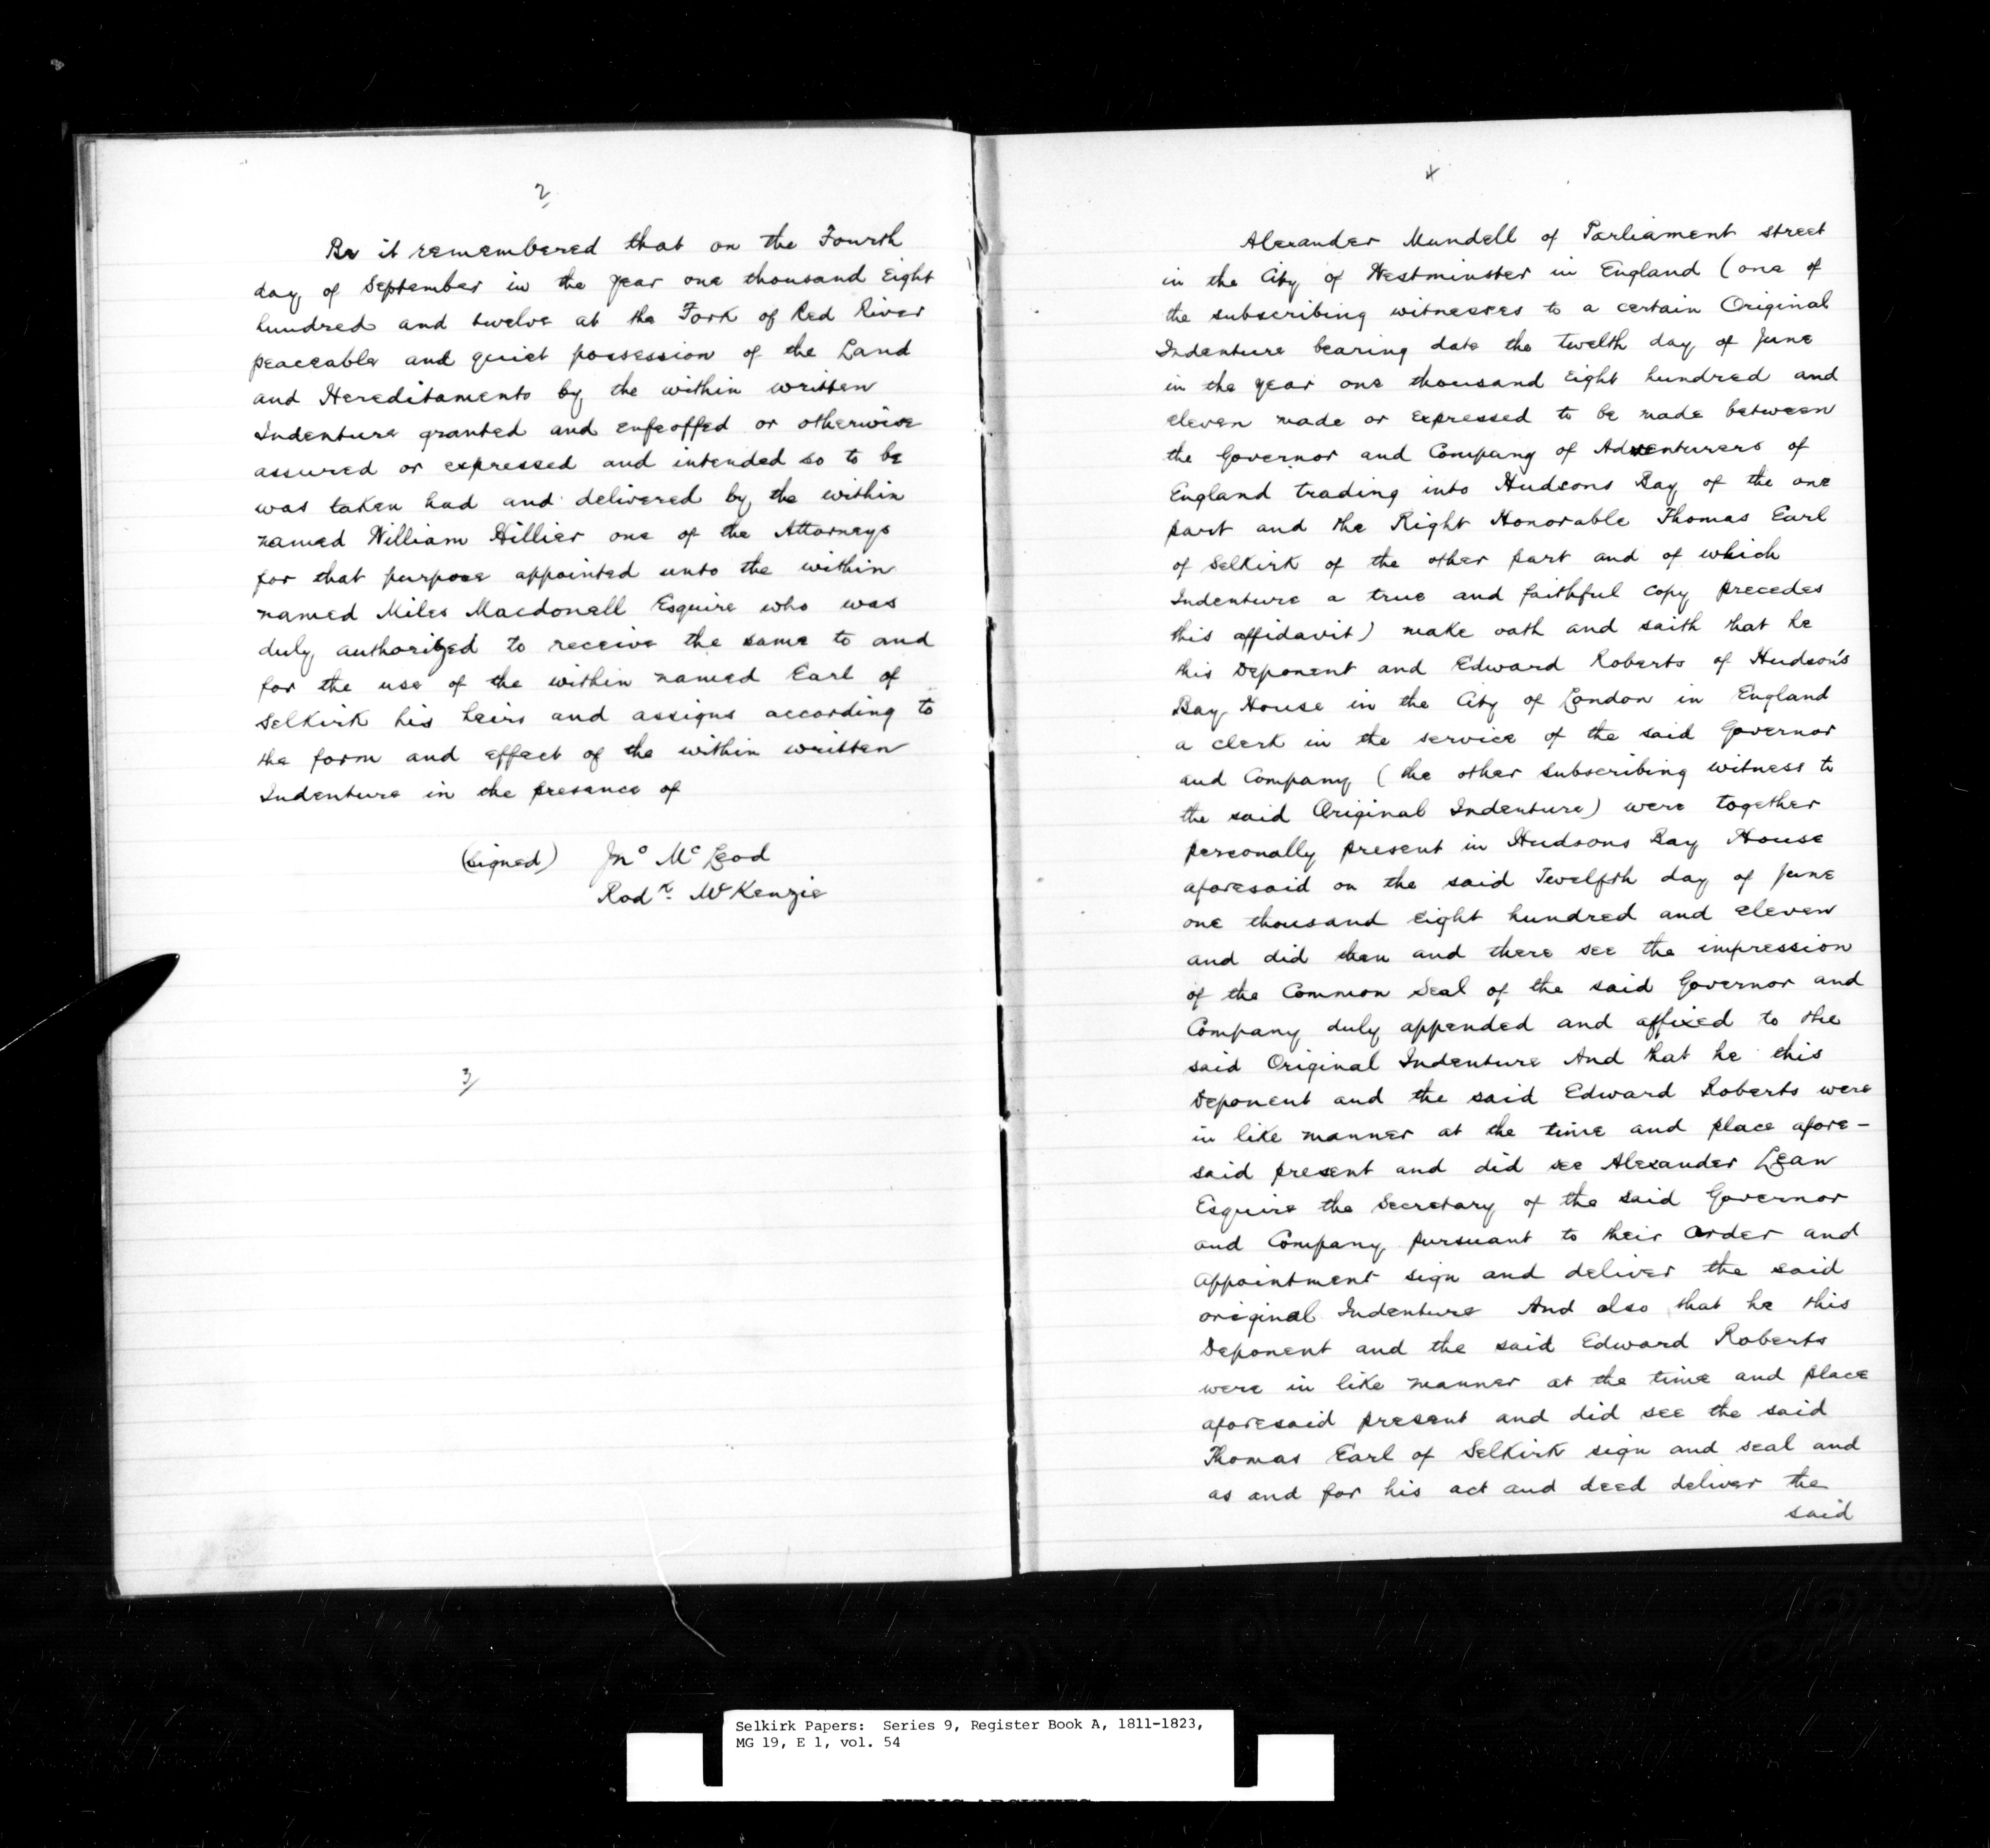 2
Be it remembered that on the Fourth
day of September in the year one thousand Eight
hundred and twelve at the Fork of Red River
peaceable and quiet possession of the Land
and Hereditaments by the within written
Indenture granted and enfeoffed or otherwise
assured or expressed and intended so to be
was taken had and delivered by the within
named William Hillier one of the Attorneys
for that purpose appointed unto the within
named Miles Macdonell Esquire who was
duly authorized to receive the same to and
for the use of the within named Earl of
Selkirk his heirs and assigns according to
the form and effect of the within written
Indenture in the presence of
(signed) Jno McLeod
Rodk. McKenzie
3/
4
Alexander Mundell of Parliament street
in the City of Westminster in England (one of
the subscribing witnesses to a certain Original
Indenture bearing date the twelth day of June
in the year one thousand Eight hundred and
eleven made or expressed to be made between
the Governor and Company of Adventurers of
England trading into Hudsons Bay of the one
part and the Right Honorable Thomas Earl
of Selkirk of the other part and of which
Indenture a true and faithful copy precedes
this affidavit) make oath and saith that he
this Deponent and Edward Roberts of Hudson's
Bay House in the City of London in England
a clerk in the service of the said Governor
and Company (the other subscribing witness to
the said Original Indenture) were together
personally present in Hudsons Bay House
aforesaid on the said Twelfth day of June
one thousand eight hundred and eleven
and did then and there see the impression
of the Common Seal of the said Governor and
Company duly appended and affixed to the
said Original Indenture And that he this
Deponent and the said Edward Roberts were
in like manner at the time and place afore-
said present and did see Alexander Lean
Esquire the Secretary of the said Governor
and Company pursuant to their order and
appointment sign and deliver the said
original Indenture And also that he this
Deponent and the said Edward Roberts
were in like manner at the time and place
aforesaid present and did see the said
Thomas Earl of Selkirk sign and seal and
as and for his act and deed deliver the
said
Selkirk Papers: Series 9, Register Book A, 1811-1823,
MG 19, E 1, vol. 54